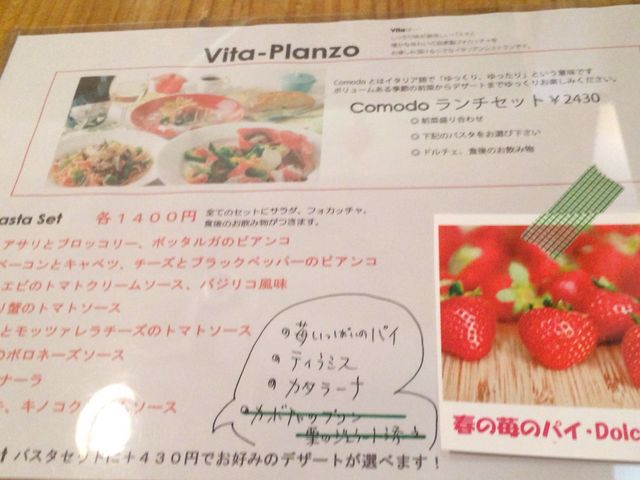 Vita-Planzo
Comodo とはイタリア語で「ゆっくり、ゆったり」という意味です
ボリュームある季節の前菜からデザートまでゆっくりお楽しみください。
Comodo ランチセット ¥2430
◎前菜盛り合わせ
◎下記のパスタをお選び下さい
◎ドルチェ、食後のお飲み物
asta Set 各1400円 全てのセットにサラダ、フォカッチャ、
食後のお飲み物がつきます。
アサリとブロッコリー、ボッタルガのビアンコ
ベーコンとキャベツ、チーズとブラックペッパーのビアンコ
エビのトマトクリームソース、バジリコ風味
蟹のトマトソース
とモッツァレラチーズのトマトソース
のボロネーズソース
ナーラ
、キノコク ソース
苺いっぱいのパイ
ティラミス
カタラーナ
カボチャのプリン
春の苺のパイ・Dolc
パスタセットに+430円でお好みのデザートが選べます!